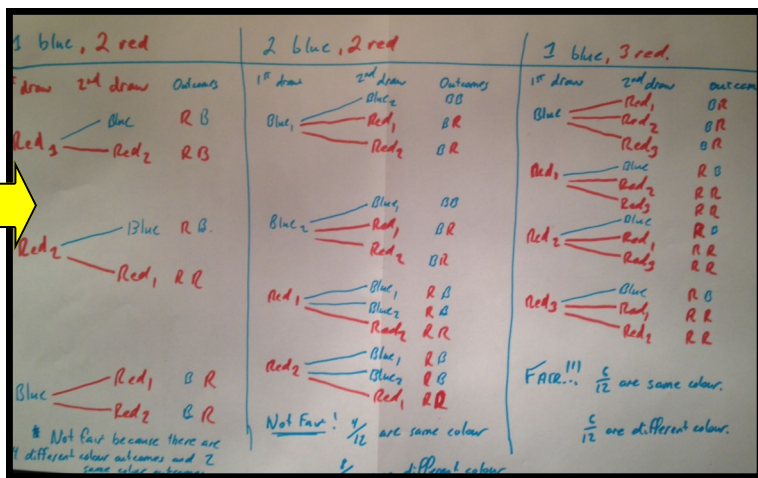 1 blue, 2 red
draw 2nd draw Outcomes
Blue R B
Red3
Red2 R B
Blue R B
Red2
Red1 R R
Red1 B R
Blue
Red2 B R
* Not fair because there are
4 different colour outcomes and 2
same colour outcomes
2 blue, 2 red
1st draw 2nd draw Outcomes
Blue2 BB
Blue1 Red1 BR
Red2 BR
Blue1 BB
Blue2 Red1 BR
Red2 BR
Blue1 R B
Red1 Blue2 R B
Red2 RR
Blue1 R B
Red2 Blue2 R B
Red1 RR
Not Fair! 4/12 are same colour
8/ different colour
1 blue, 3 red.
1st draw 2nd draw outcom
Red1 BR
Blue Red2 BR
Red3 BR
Red1 Blue R B
Red2 R R
Red3 R R
Blue R B
Red2 Red1 R R
Red3 R R
Blue R B
Red3 Red1 R R
Red2 R R
FAIR..!!! 6/12 are same colour.
6/12 are different colour.